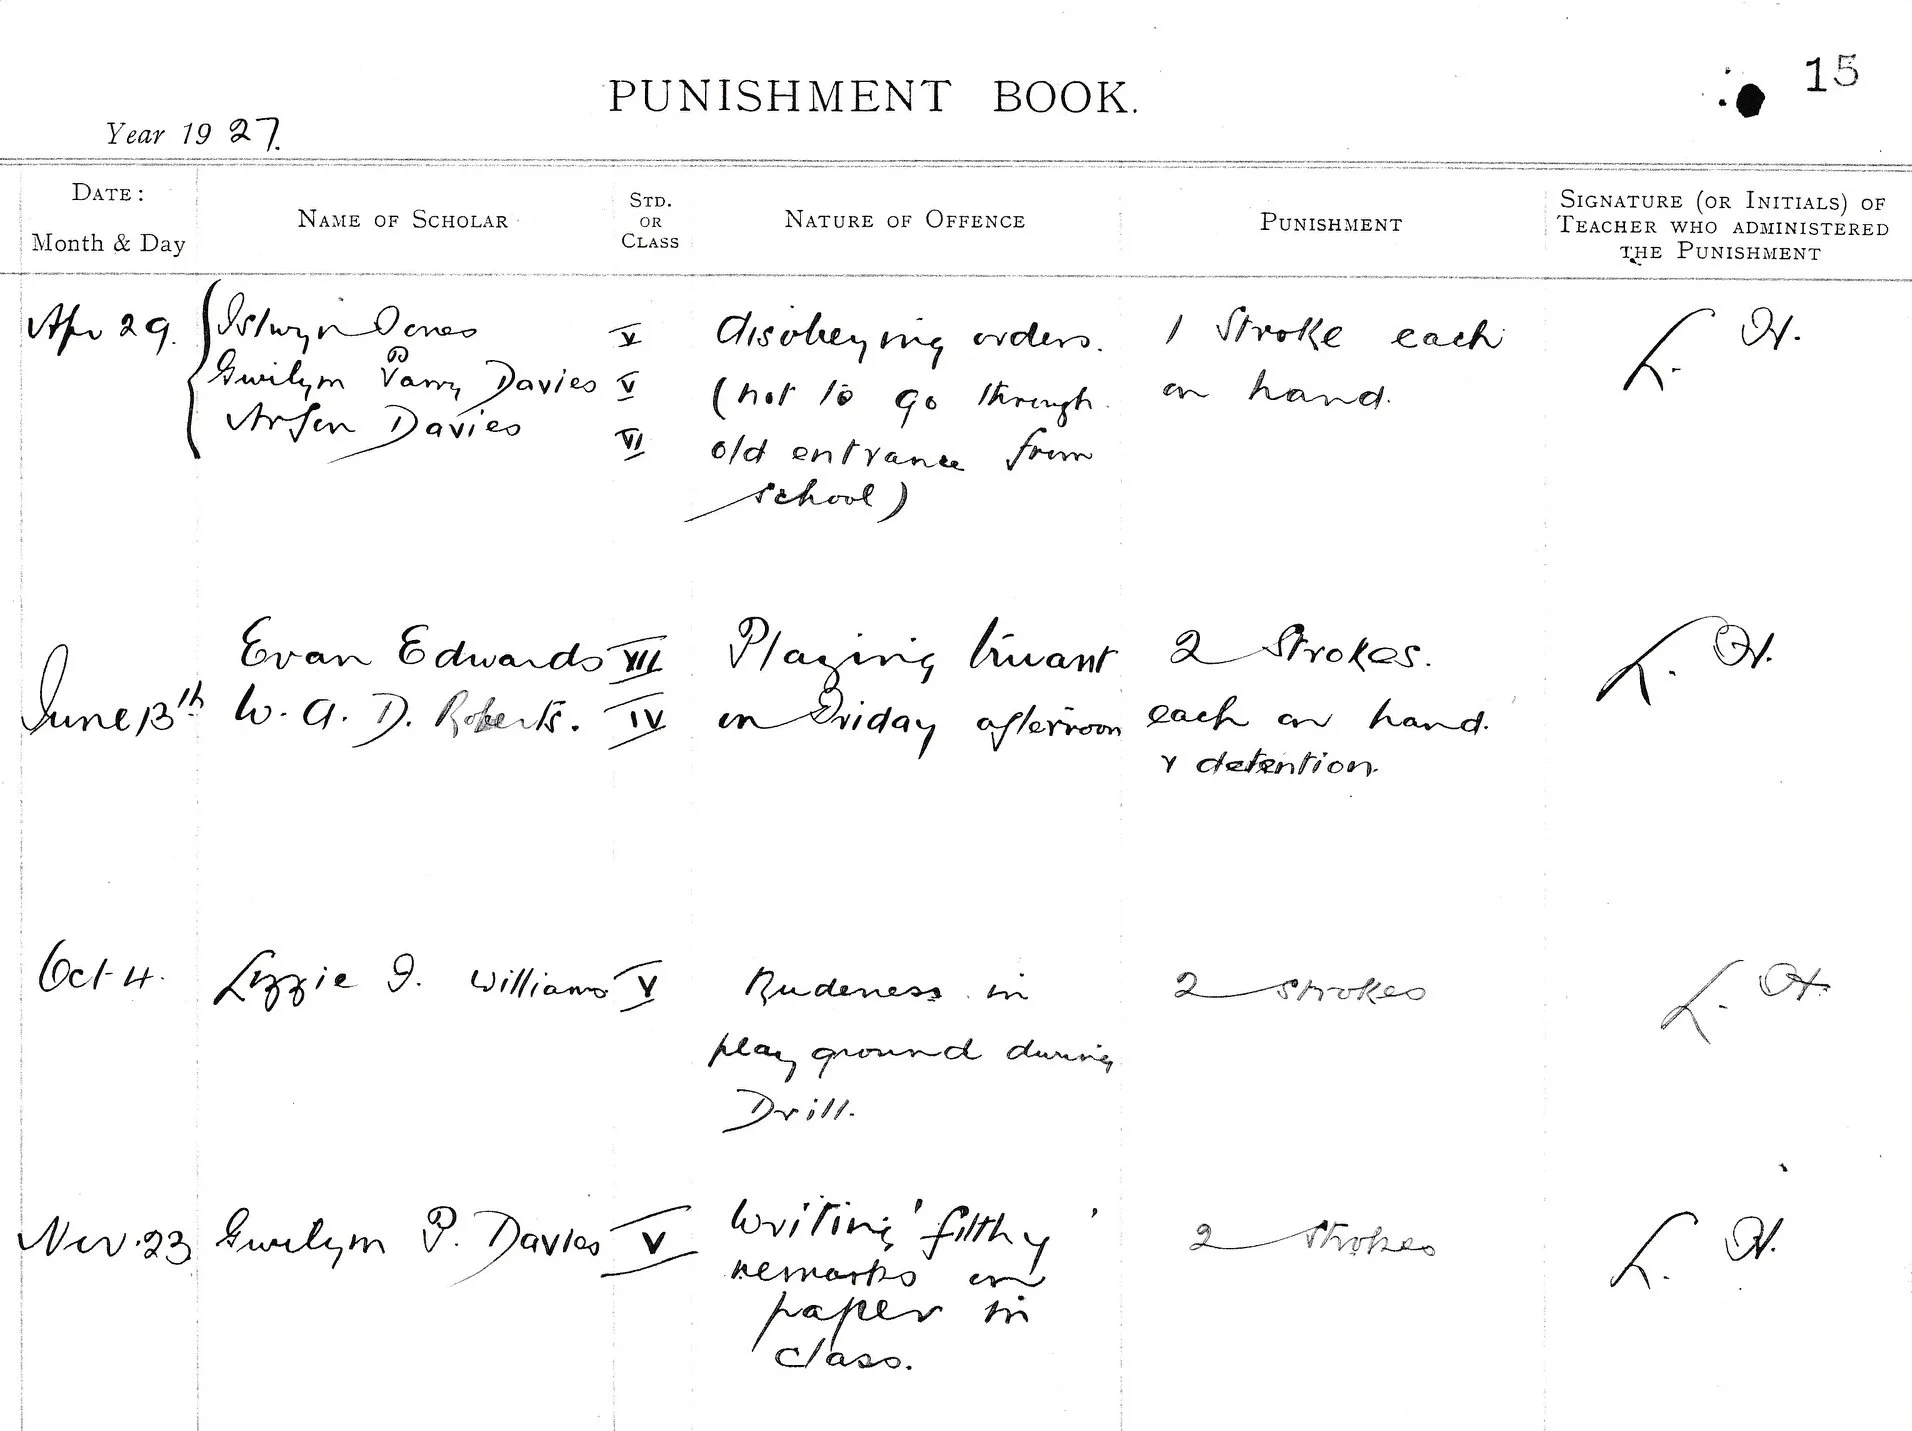 15
PUNISHMENT BOOK.
Year 1927.
DATE:
Month & Day
NAME OF SCHOLAR
STD.
OR
CLASS
NATURE OF OFFENCE
PUNISHMENT
SIGNATURE (OR INITIALS) OF
TEACHER WHO ADMINISTERED
THE PUNISHMENT
Apr 29. Islwyn Jones V disobeying orders. 1 Stroke each L. H.
Gwilym Parry Davies V (not to go through on hand.
Arfon Davies VI old entrance from
school)
Evan Edwards VII Playing truant 2 Strokes. L. H.
June 13th W. A. D. Roberts. IV on Friday afternoon each on hand.
& detention.
Oct 4. Lizzie J. Williams V Rudeness in 2 strokes L. H.
play ground during
Drill.
Nov. 23 Gwilym P. Davies V Writing 'filthy' 2 strokes L. H.
remarks on
paper in
class.